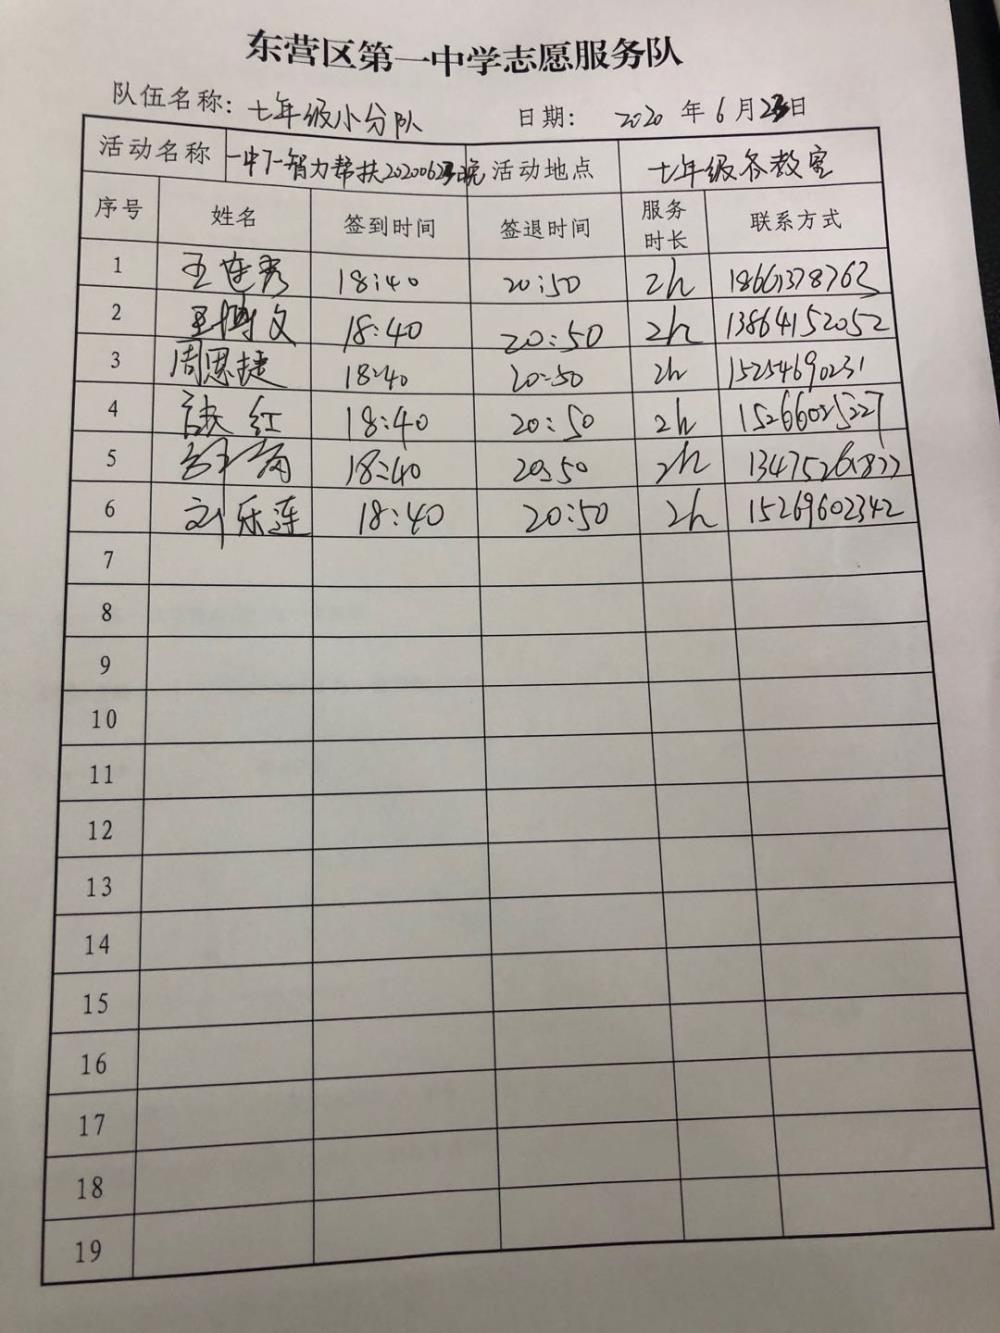 东营区第一中学志愿服务队
队伍名称: 七年级小分队 日期: 2020 年 6 月 23 日
活动名称 一中丁-智力帮扶20200623晚 活动地点 七年级各教室
序号 姓名 签到时间 签退时间 服务时长 联系方式
1 王连秀 18:40 20:50 2h 18661378763
2 王博文 18:40 20:50 2h 13864152052
3 周思捷 18:40 20:50 2h 15254690231
4 红 18:40 20:50 2h 15266025327
5 18:40 20:50 2h
6 刘乐莲 18:40 20:50 2h 15269602342
7
8
9
10
11
12
13
14
15
16
17
18
19